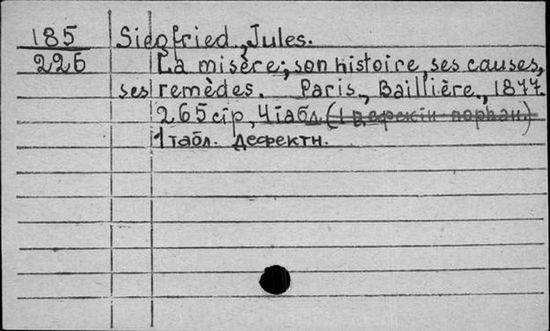 185 Siegfried, Jules.
226 La misère; son histoire, ses causes,
ses remèdes. Paris, Baillière, 1877.
265 стр, 4 табл.
1 табл. дефектн.